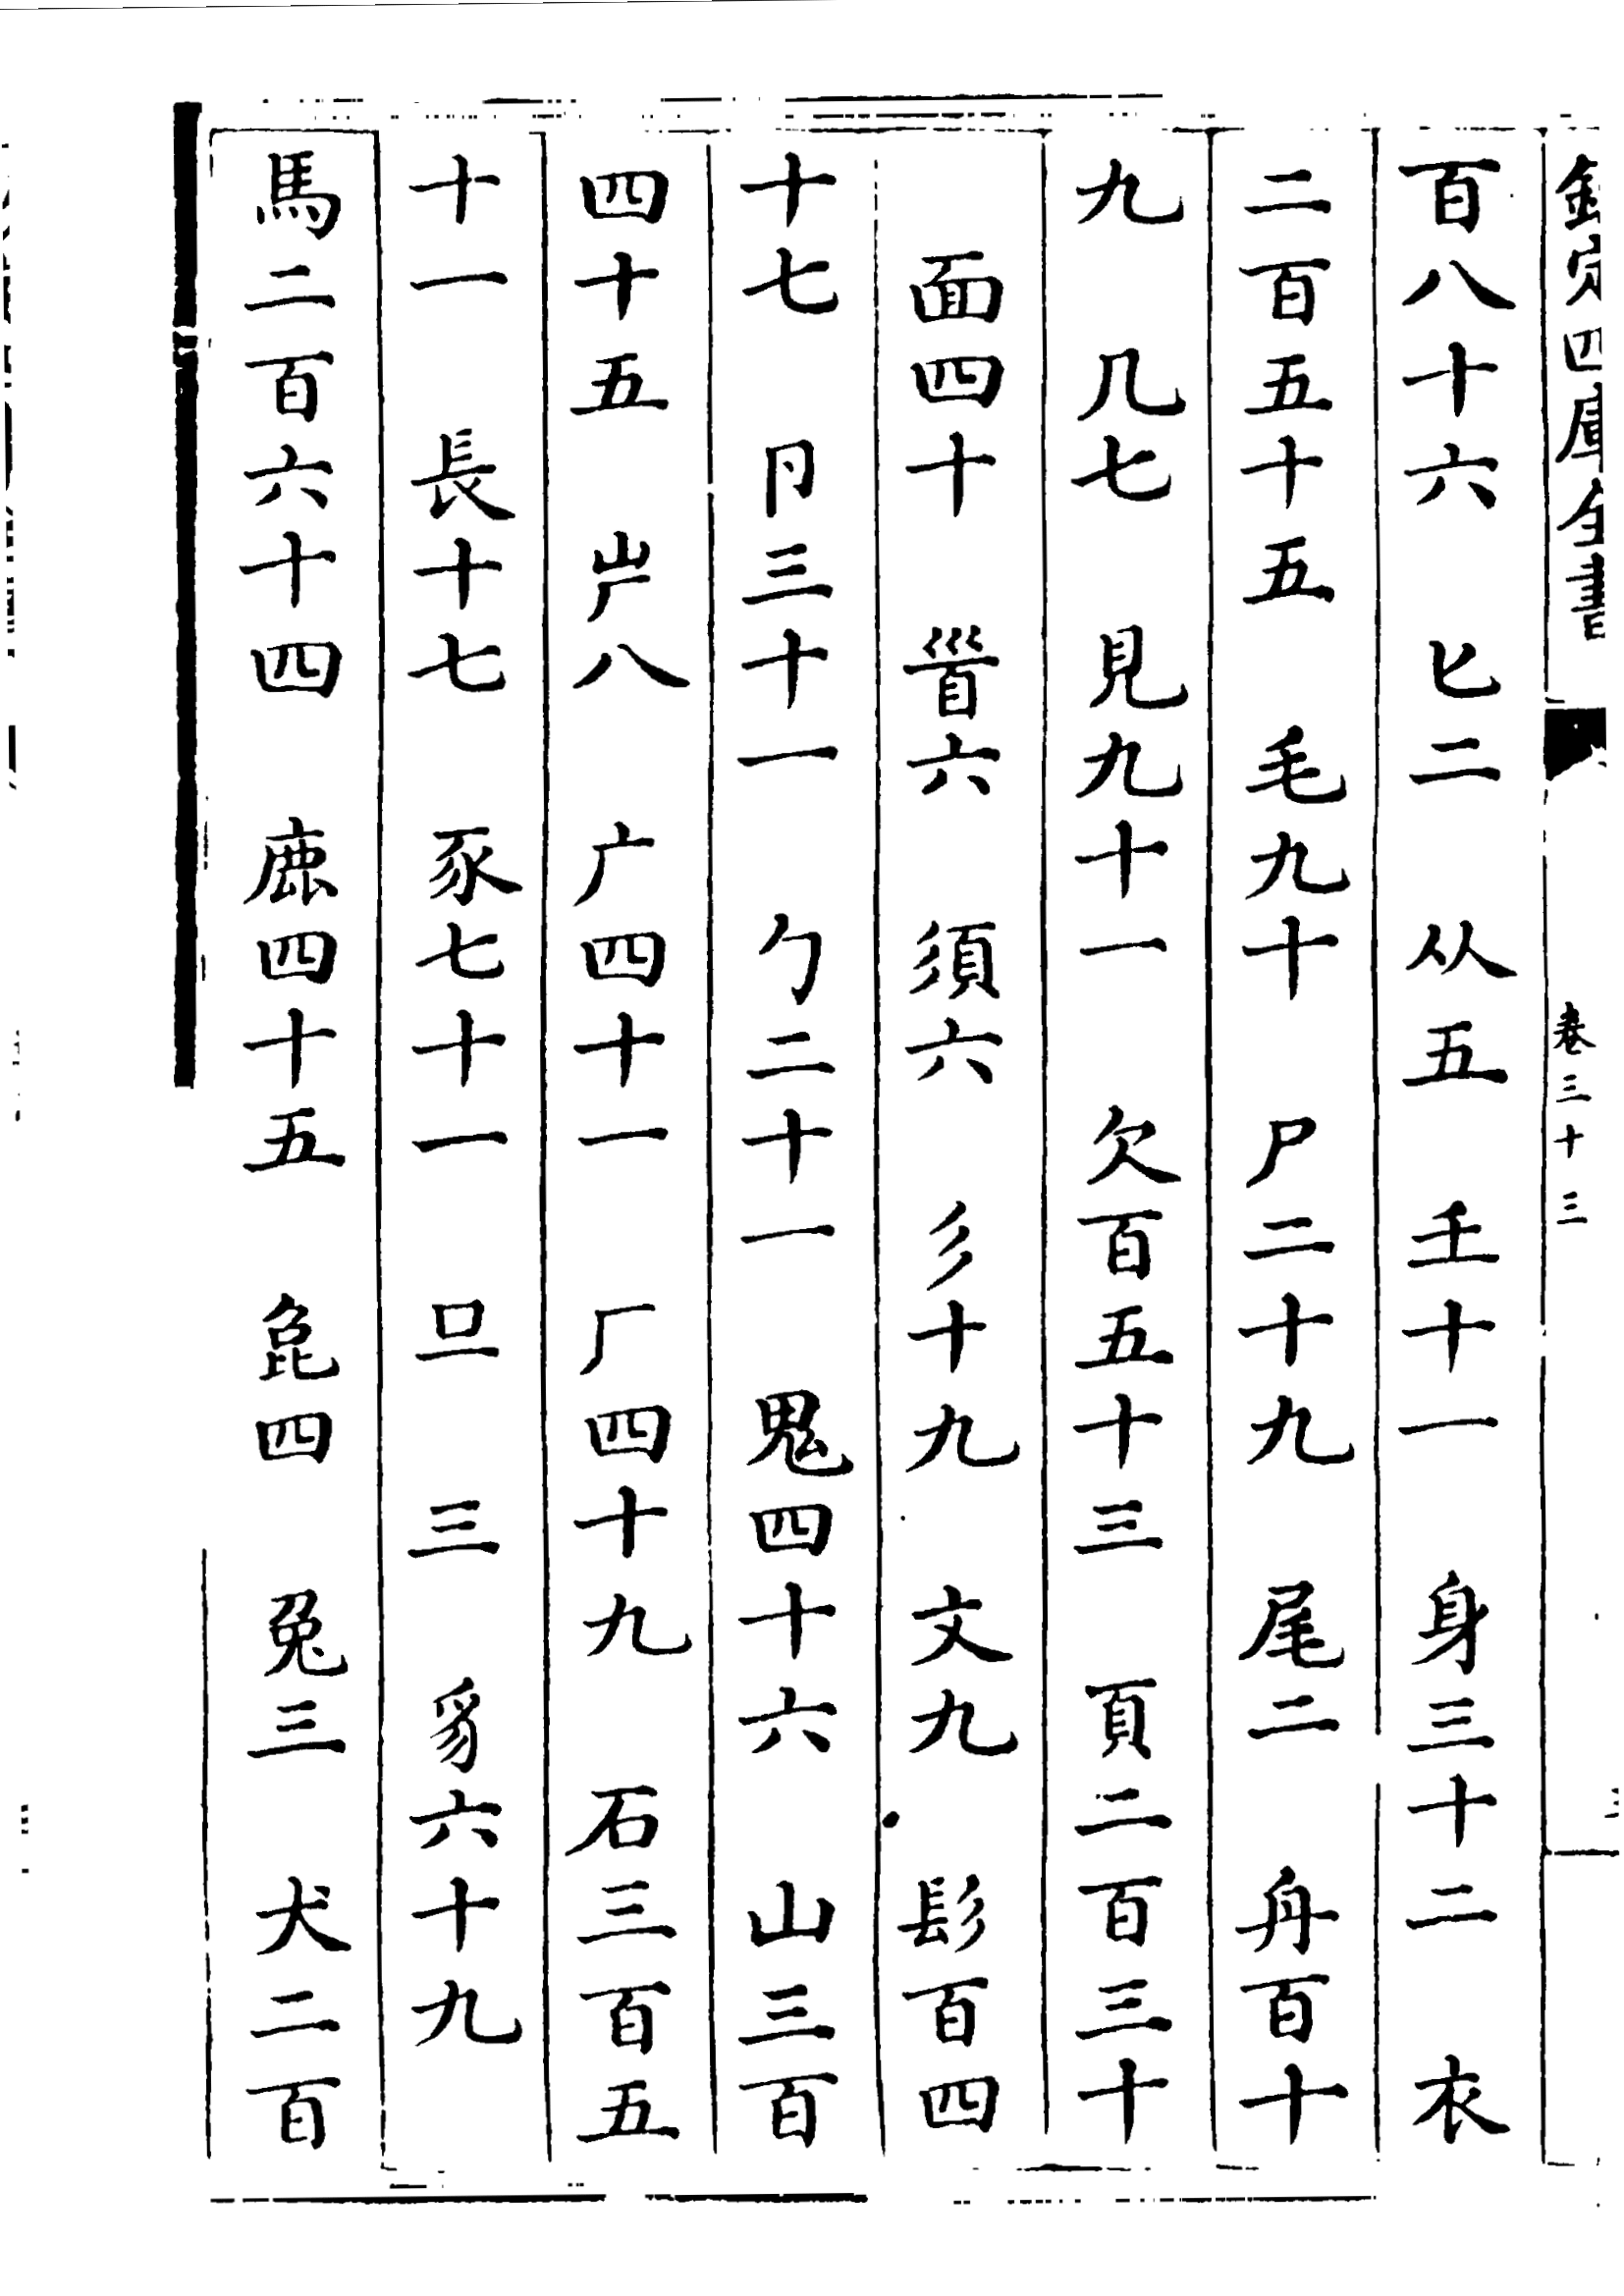 欽定四庫全書 卷三十三
百八十六 匕二 从五 壬十一 身三十二 衣
二百五十五 毛九十 尸二十九 尾二 舟百十
九 几七 見九十一 欠百五十三 頁二百三十
面四十 𥄉六 須六 彡十九 文九 髟百四
十七 卩三十一 勹二十一 鬼四十六 山三百
四十五 屵八 广四十一 厂四十九 石三百五
十一 長十七 豕七十一 㠯三 豸六十九
馬二百六十四 鹿四十五 㲋四 兔三 犬二百